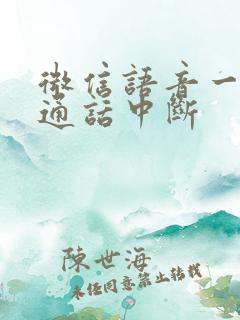 微信語音一
通話中斷
陳世海
未经同意禁止转载